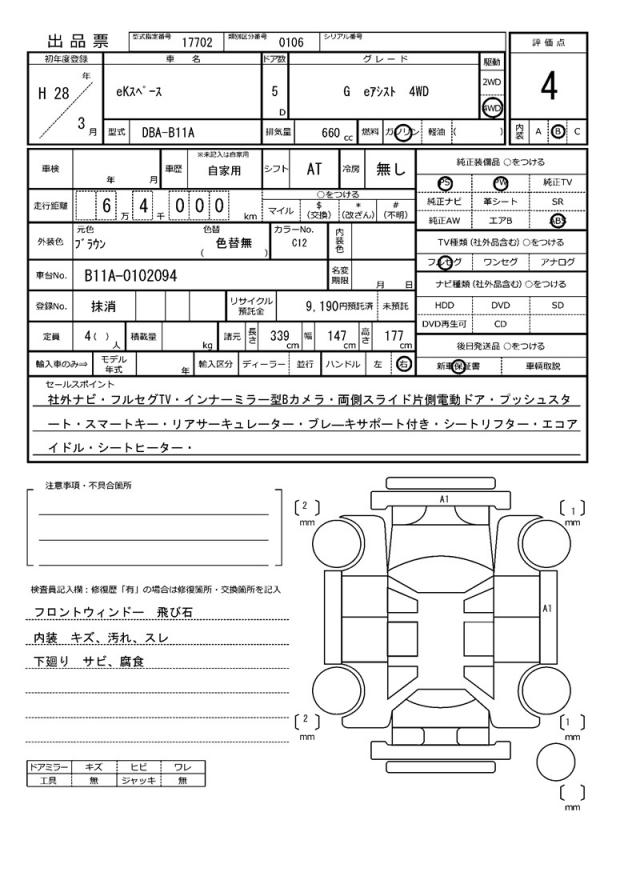 出品票
型式指定番号 17702 類別区分番号 0106 シリアル番号
評価点
4
初年度登録 車名 ドア数 グレード 駆動
H 28 年
3 月
eKスペース
5 D
G eアシスト 4WD
2WD
4WD
型式 DBA-B11A 排気量 660 cc 燃料 ガソリン 軽油 ( )
内装 A B C
車検 年 月
車歴 ※未記入は自家用
自家用
シフト AT 冷房 無し
純正装備品 ○をつける
PS PW 純正TV
純正ナビ 革シート SR
純正AW エアB ABS
走行距離 6 万 4 千 0 0 0 km
○をつける
マイル $(交換) *(改ざん) #(不明)
外装色 元色 ブラウン 色替 色替無 ( )
カラーNo. C12
内装色
TV種類(社外品含む)○をつける
フルセグ ワンセグ アナログ
車台No. B11A-0102094
名変期限 月 日
ナビ種類(社外品含む)○をつける
HDD DVD SD
DVD再生可 CD
登録No. 抹消
リサイクル預託金 9,190円預託済 未預託
定員 4( ) 人 積載量 kg 諸元 長さ 339 cm 幅 147 cm 高さ 177 cm
後日発送品 ○をつける
新車保証書 車輌取説
輸入車のみ⇒ モデル年式 年 輸入区分 ディーラー 並行 ハンドル 左 右
セールスポイント
社外ナビ・フルセグTV・インナーミラー型Bカメラ・両側スライド片側電動ドア・プッシュスタ
ート・スマートキー・リアサーキュレーター・ブレーキサポート付き・シートリフター・エコア
イドル・シートヒーター・
注意事項・不具合箇所
検査員記入欄：修復歴「有」の場合は修復箇所・交換箇所を記入
フロントウィンドー 飛び石
内装 キズ、汚れ、スレ
下廻り サビ、腐食
ドアミラー キズ ヒビ ワレ
工具 無 ジャッキ 無
A1
2 mm
1 mm
A1
2 mm
1 mm
mm